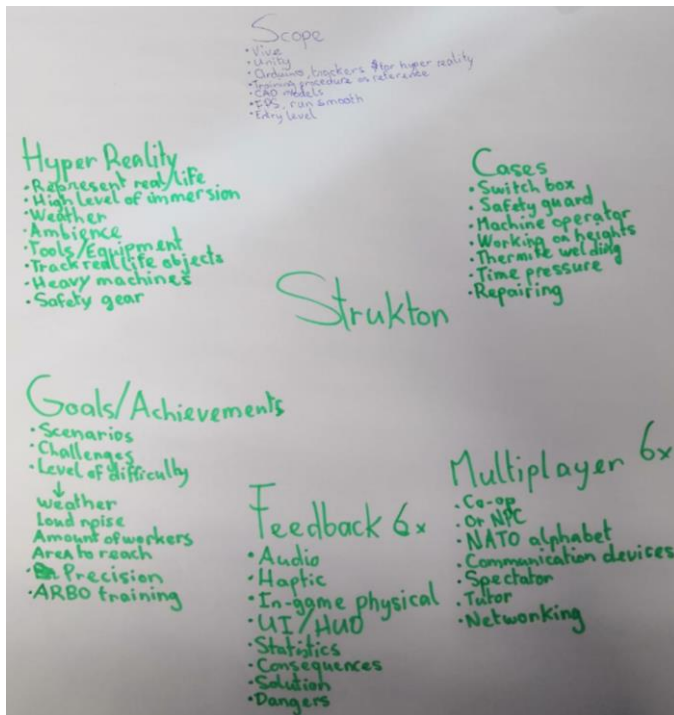 Scope
• Vive
• Unity
• Arduino, trackers for hyper reality
• Training procedure as reference
• CAD models
• FPS, run smooth
• Entry level
Hyper Reality
• Represent real life
• High level of immersion
• Weather
• Ambience
• Tools/Equipment
• Track real life objects
• Heavy machines
• Safety gear
Cases
• Switch box
• Safety guard
• Machine operator
• Working on heights
• Thermite welding
• Time pressure
• Repairing
Strukton
Goals/Achievements
• Scenarios
• Challenges
• Level of difficulty
↓
weather
Loud noise
Amount of workers
Area to reach
• Precision
• ARBO training
Feedback 6x
• Audio
• Haptic
• In-game physical
• UI/HUD
• Statistics
• Consequences
• Solution
• Dangers
Multiplayer 6x
• Co-op
• Or NPC
• NATO alphabet
• Communication devices
• Spectator
• Tutor
• Networking